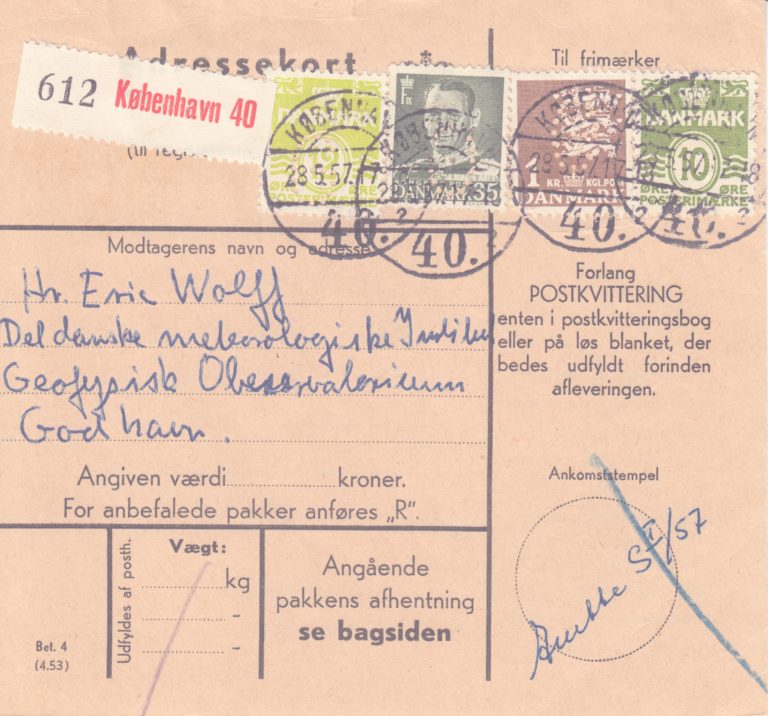 Adressekort
Til frimærker
612 København 40
(til
DANMARK
10
ØRE ØRE
POSTFRIMÆRKE
DANMARK 35
1 KR. KGL.POST
DANMARK
DANMARK
10
ØRE ØRE
POSTFRIMÆRKE
KØBENHAVN
28.5.57.17
40.
KØBENHAVN
40.
KØBENHAVN
28.5.57.17-18
40.
2
Modtagerens navn og adresse
Hr. Eric Wolff
Det danske meteorologiske Institut
Geofysisk Observatorium
Godhavn.
Forlang
POSTKVITTERING
enten i postkvitteringsbog
eller på løs blanket, der
bedes udfyldt forinden
afleveringen.
Angiven værdi kroner.
For anbefalede pakker anføres „R".
Ankomststempel
/57
Udfyldes af posth.
Vægt:
kg
-
-
Angående
pakkens afhentning
se bagsiden
Bet. 4
(4.53)